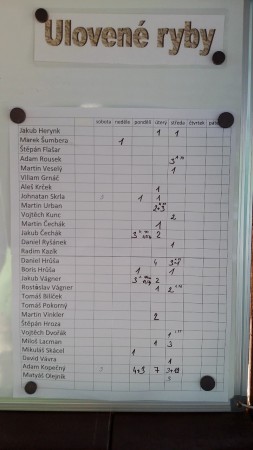 Ulovené ryby
sobota neděle pondělí úterý středa čtvrtek
Jakub Herynk 1 1
Marek Šumbera 1
Štěpán Flašar
Adam Rousek 3
Martin Veselý 1
Viliam Grnáč
Aleš Krček 1
Johnatan Skrla 1 1
Martin Urban 2+3
Vojtěch Kunc 2
Martin Čechák 1
Jakub Čechák 3 2
Daniel Ryšánek 1
Radim Kokorný
Daniel Hrůša 4
Boris Hrůša 1 1
Jakub Vágner 3 2
Rostislav Vágner 1 2
Tomáš Bilíček
Tomáš Pazorný
Martin Vinkler 2
Štěpán Hroza
Vojtěch Dvořák 1
Miloš Lacman 1 3
Mikuláš Skácel 1
David Vávra 1
Adam Kopečný 4+3 7
Matyáš Olejník